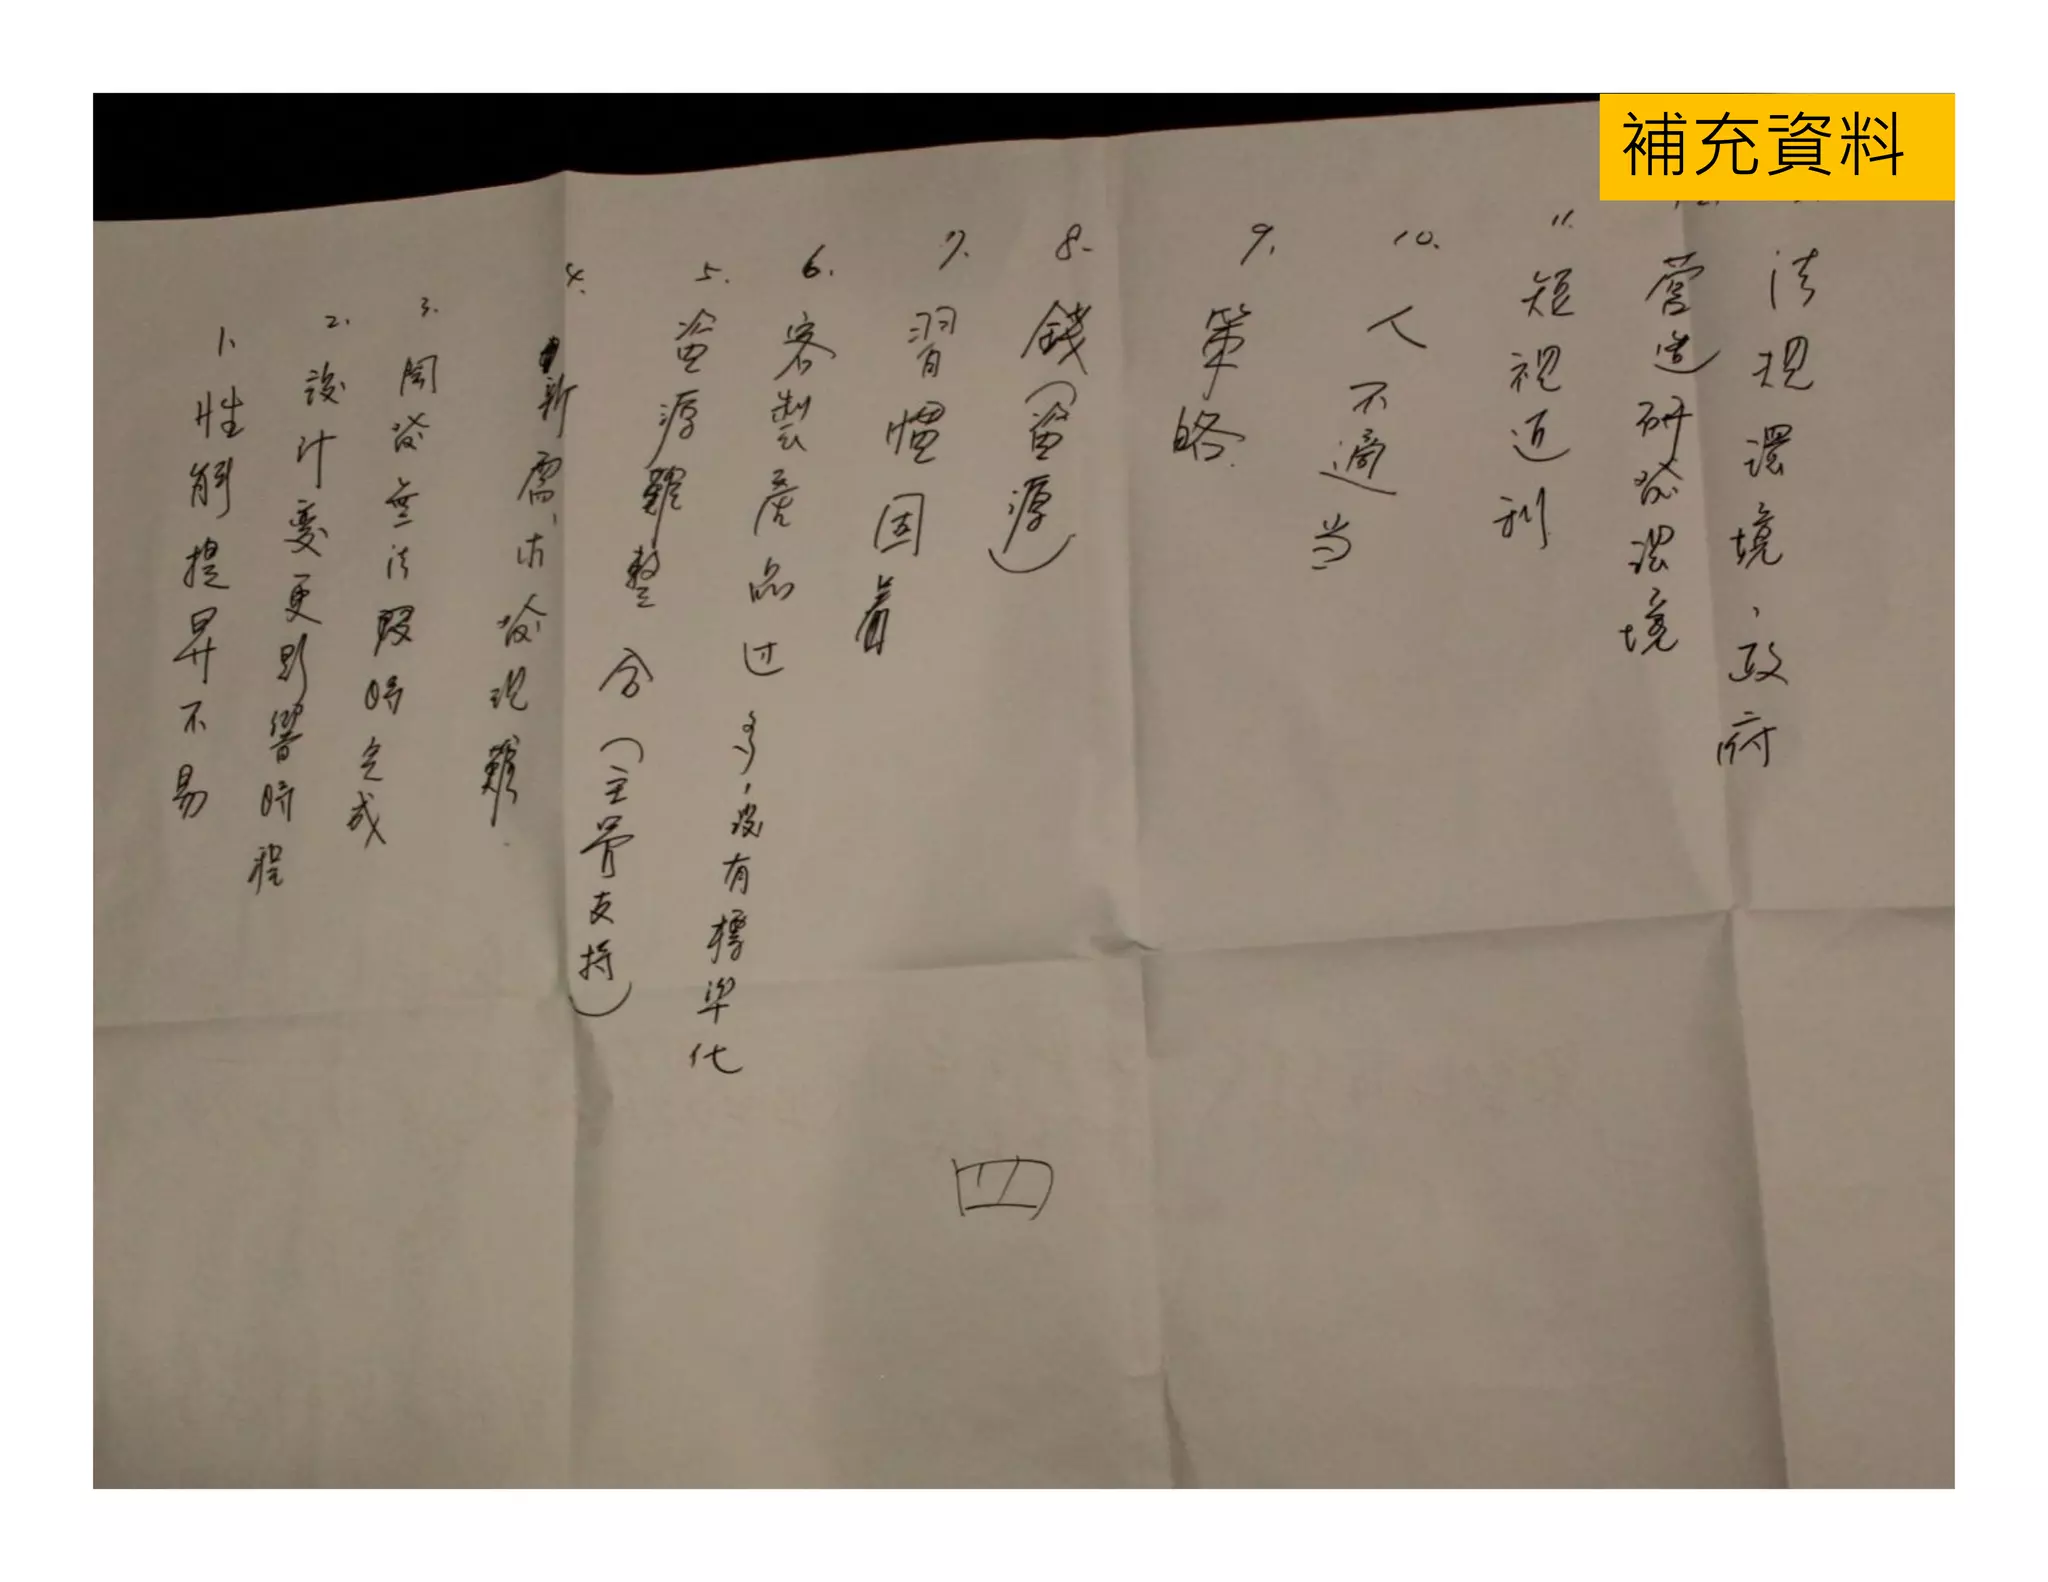 補充資料
1. 性能提昇不易
2. 設計變更影響時程
3. 開發無法限時完成
4. 新需求發現難
5. 資源難整合(主管支持)
6. 客製產品过多,没有標準化
7. 習慣固着
8. 錢(資源)
9. 策略
10. 人不適当
11. 短視近利
營造研發環境
法規環境,政府
四